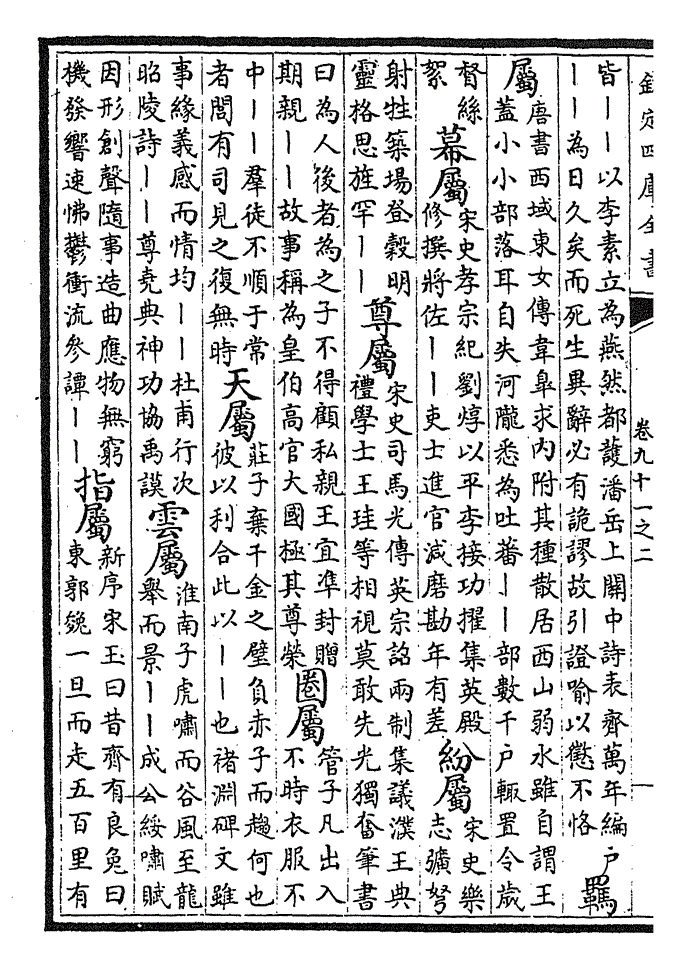 欽定四庫全書 卷九十一之二 一
皆——以李素立為燕然都䕶潘岳上關中詩表齊萬年編户
——為日久矣而死生異辭必有詭謬故引證喻以懲不恪
羈
屬
唐書西域東女傳韋臯求内附其種散居西山弱水雖自謂王
蓋小小部落耳自失河隴悉為吐蕃——部數千户輙置令歲
督絲
絮
幕屬
宋史孝宗紀劉焞以平李接功擢集英殿
修撰將佐——吏士進官減磨勘年有差
紛屬
宋史樂
志彍弩
射牲築場登穀明
靈格思旌罕——
尊屬
宋史司馬光傳英宗詔兩制集議濮王典
禮學士王珪等相視莫敢先光獨奮筆書
曰為人後者為之子不得顧私親王宜凖封贈
期親——故事稱為皇伯高官大國極其尊榮
圈屬
管子凡出入
不時衣服不
中——羣徒不順于常
者閭有司見之復無時
天屬
莊子棄千金之璧負赤子而趨何也
彼以利合此以——也褚淵碑文雖
事緣義感而情均——杜甫行次
昭陵詩——尊堯典神功協禹謨
雲屬
淮南子虎嘯而谷風至龍
舉而景——成公綏嘯賦
因形創聲隨事造曲應物無窮
機發響速怫鬱衝流參譚——
指屬
新序宋玉曰昔齊有良兔曰
東郭㕙一旦而走五百里有